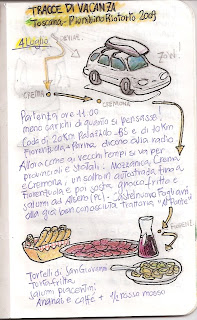 TRACCE DI VACANZA
Toscana - Piombino Riotorto 2009
4 Luglio
CREMA
CREMONA
Partenza ore 11.00
meno carichi di quanto si pensasse.
Coda di 20 Km Palazzolo-BS e di 10 Km
Fiorenzuola - Parma dicono alla radio
Allora come ai vecchi tempi si va per
provinciali e statali. Mozzanica, Crema
e Cremona, e poi in autostrada fino a
Fiorenzuola e poi sosta gnocco fritto e
salumi ad Alseno (PC) - Castelnuovo Fogliani
alla già ben conosciuta trattoria "Al Ponte"
Tortelli di San Giovanni
Torta fritta
Salumi piacentini
Ananas e caffè + 1/2 rosso mosso